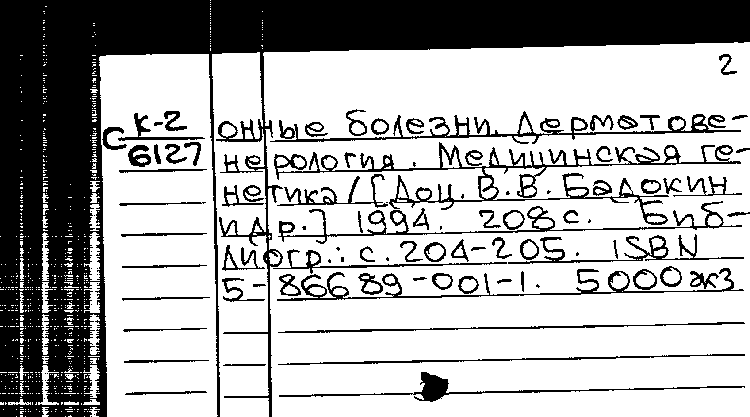 2
С К-2
6127
онные болезни. Дерматове-
нерология. Медицинская ге-
нетика / [Доц. В.В. Бадокин
и др.] 1994. 208 с. Биб-
лиогр.: с. 204-205. ISBN
5-86689-001-1. 5000 экз